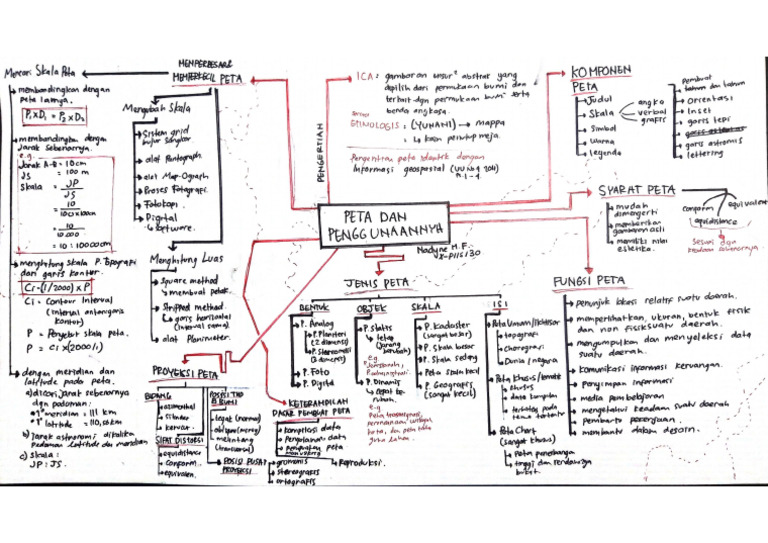 PETA DAN
PENGGUNAANNYA
Nadyne M.F.
MEMPERBESAR &
MEMPERKECIL PETA
Mencari Skala Peta
membandingkan dengan
peta lainnya.
P₁ x D₁ = P₂ x D₂
membandingkan dengan
Jarak Sebenarnya.
e.g.
Jarak A-B = 10 cm
JS = 100 m
Skala = JP
JS
= 10
100 x 100cm
= 10
10.000
= 10 : 10000cm
menghitung Skala P. Topografi
dari garis kontur.
Ci = (1/2000) x P
Ci = Contour Interval
(interval antar garis
kontur)
P = Penyebut Skala peta.
P = Ci x (2000/1)
dengan meridian dan
latitude pada peta.
a) dicari Jarak sebenarnya
dgn pedoman:
1° meridian : 111 km
1° latitude
b) Jarak astronomi dikalikan
pedoman latitude dan meridian
c) skala:
JP : JS.
Mengubah Skala
Sistem grid
bujur sangkar
alat Pantograph
alat Map-Ograph
Proses Fotografi
Fotokopi
Digital
software.
Menghitung Luas
Square method
membuat petak.
Stripped method
garis horizontal
alat Planimeter.
PENGERTIAN
ICA: gambaran unsur² abstrak yang
dipilih dari permukaan bumi dan
terkait dgn permukaan bumi serta
benda angkasa.
ETIMOLOGIS: (YUNANI) → mappa
kain penutup meja.
Informasi geospasial
KOMPONEN
PETA
Judul
Skala
angka
verbal
grafis
Simbol
warna
legenda
Pembuat
tahun dan tahun
Orientasi
Inset
garis tepi
garis astronomis
lettering
SYARAT PETA
mudah
dimengerti
memberikan
gambaran asli
memiliki nilai
estetika.
conform
equivalent
equidistance
Sesuai dgn
keadaan asalnya.
FUNGSI PETA
penunjuk lokasi relatif suatu daerah.
memperlihatkan, ukuran, bentuk fisik
dan non fisik suatu daerah.
mengumpulkan dan menyeleksi data
suatu daerah.
komunikasi informasi keruangan.
penyimpan informasi
media pembelajaran
mengetahui keadaan suatu daerah
pembantu pekerjaan.
membantu dalam desain.
JENIS PETA
BENTUK
P. Analog
P. Planimetri
(2 dimensi)
P. Stereometri
(3 dimensi)
P. Foto
P. Digital
OBJEK
P. Statis
tetap
(jarang
berubah)
e.g.
P. Dinamis
cepat berubah.
e.g.
SKALA
P. Kadaster
(sangat besar)
P. Skala besar
P. Skala sedang
Peta skala kecil
P. Geografis
(sangat kecil)
ISI
Peta Umum/Ikhtisar
topografi
chorografi
Dunia/negara
Peta Khusus/tematik
khusus
data kumpulan
tertuju pada
tema tertentu
Peta Chart
(sangat khusus)
Peta penerbangan
PROYEKSI PETA
BIDANG
azimuthal
silinder
kerucut
SIFAT DISTORSI
equidistance
conform
equivalen.
POSISI THD
BUMI
tegak (normal)
oblique (miring)
melintang
(transversal)
POSISI PUSAT
PROYEKSI
gnomonis
stereografis
ortografis
KETERAMPILAN
DASAR PEMBUAT PETA
kompilasi data
pengolahan data
Reproduksi.